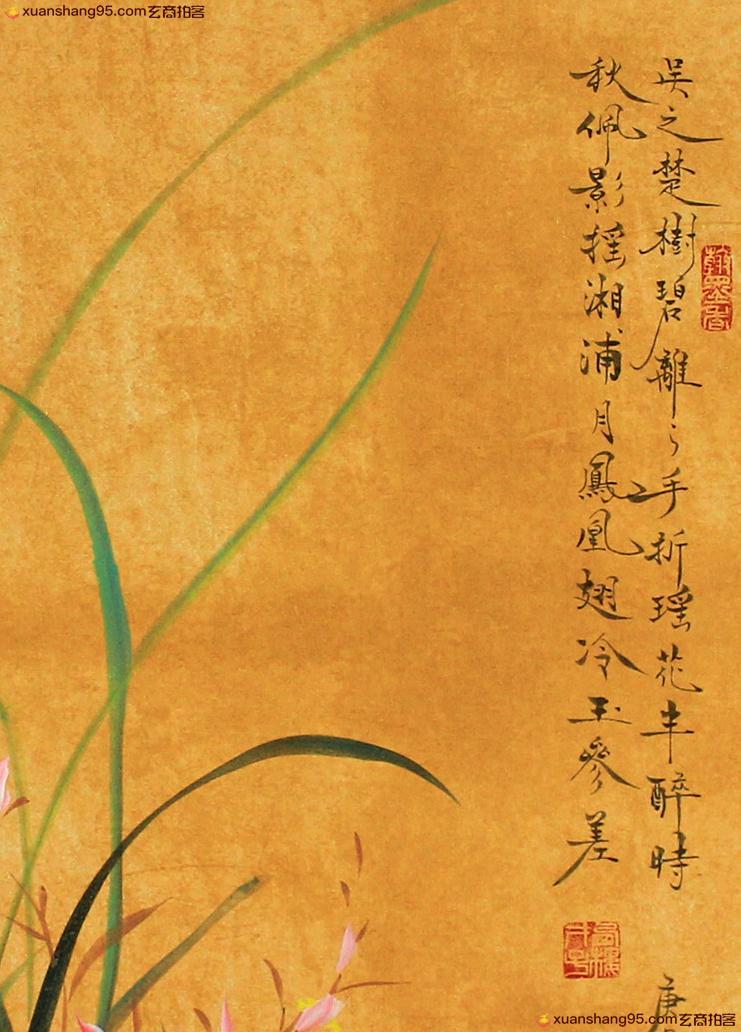 xuanshang95.com玄商拍客
吴之楚樹碧離〻手折瑶花丰醉時
秋佩影摇湘浦月鳳凰翅冷玉參差
翰墨香
唐
xuanshang95.com玄商拍客